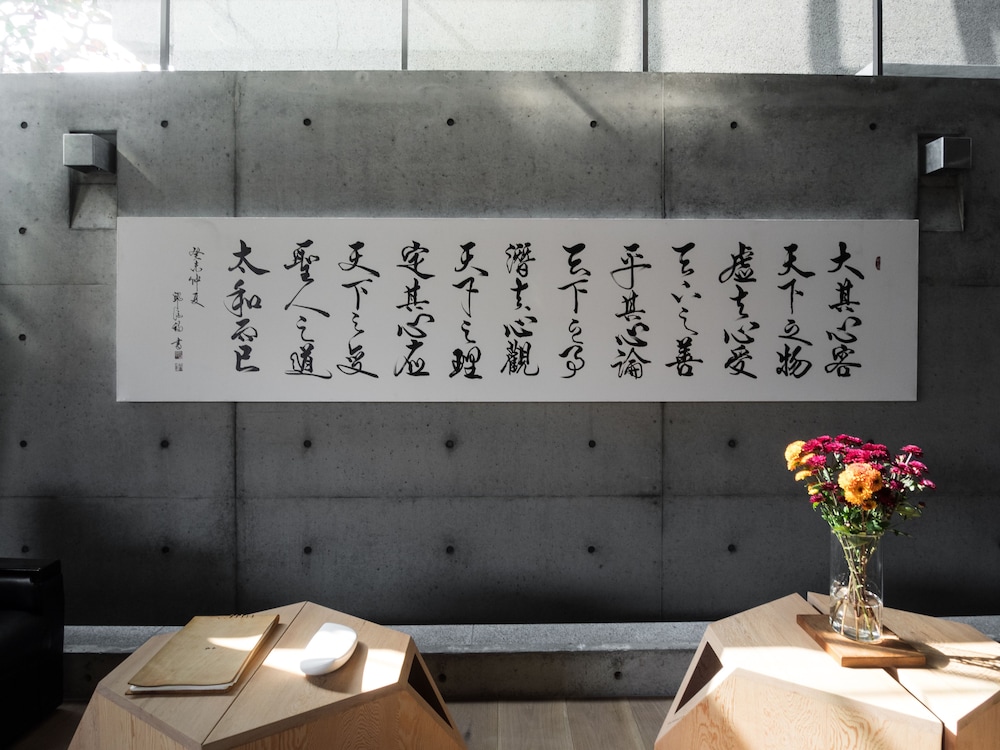 大其心容
天下之物
虛其心受
天下之善
平其心論
天下之事
潛其心觀
天下之理
定其心應
天下之變
聖人之道
太和而已
癸未仲夏
書